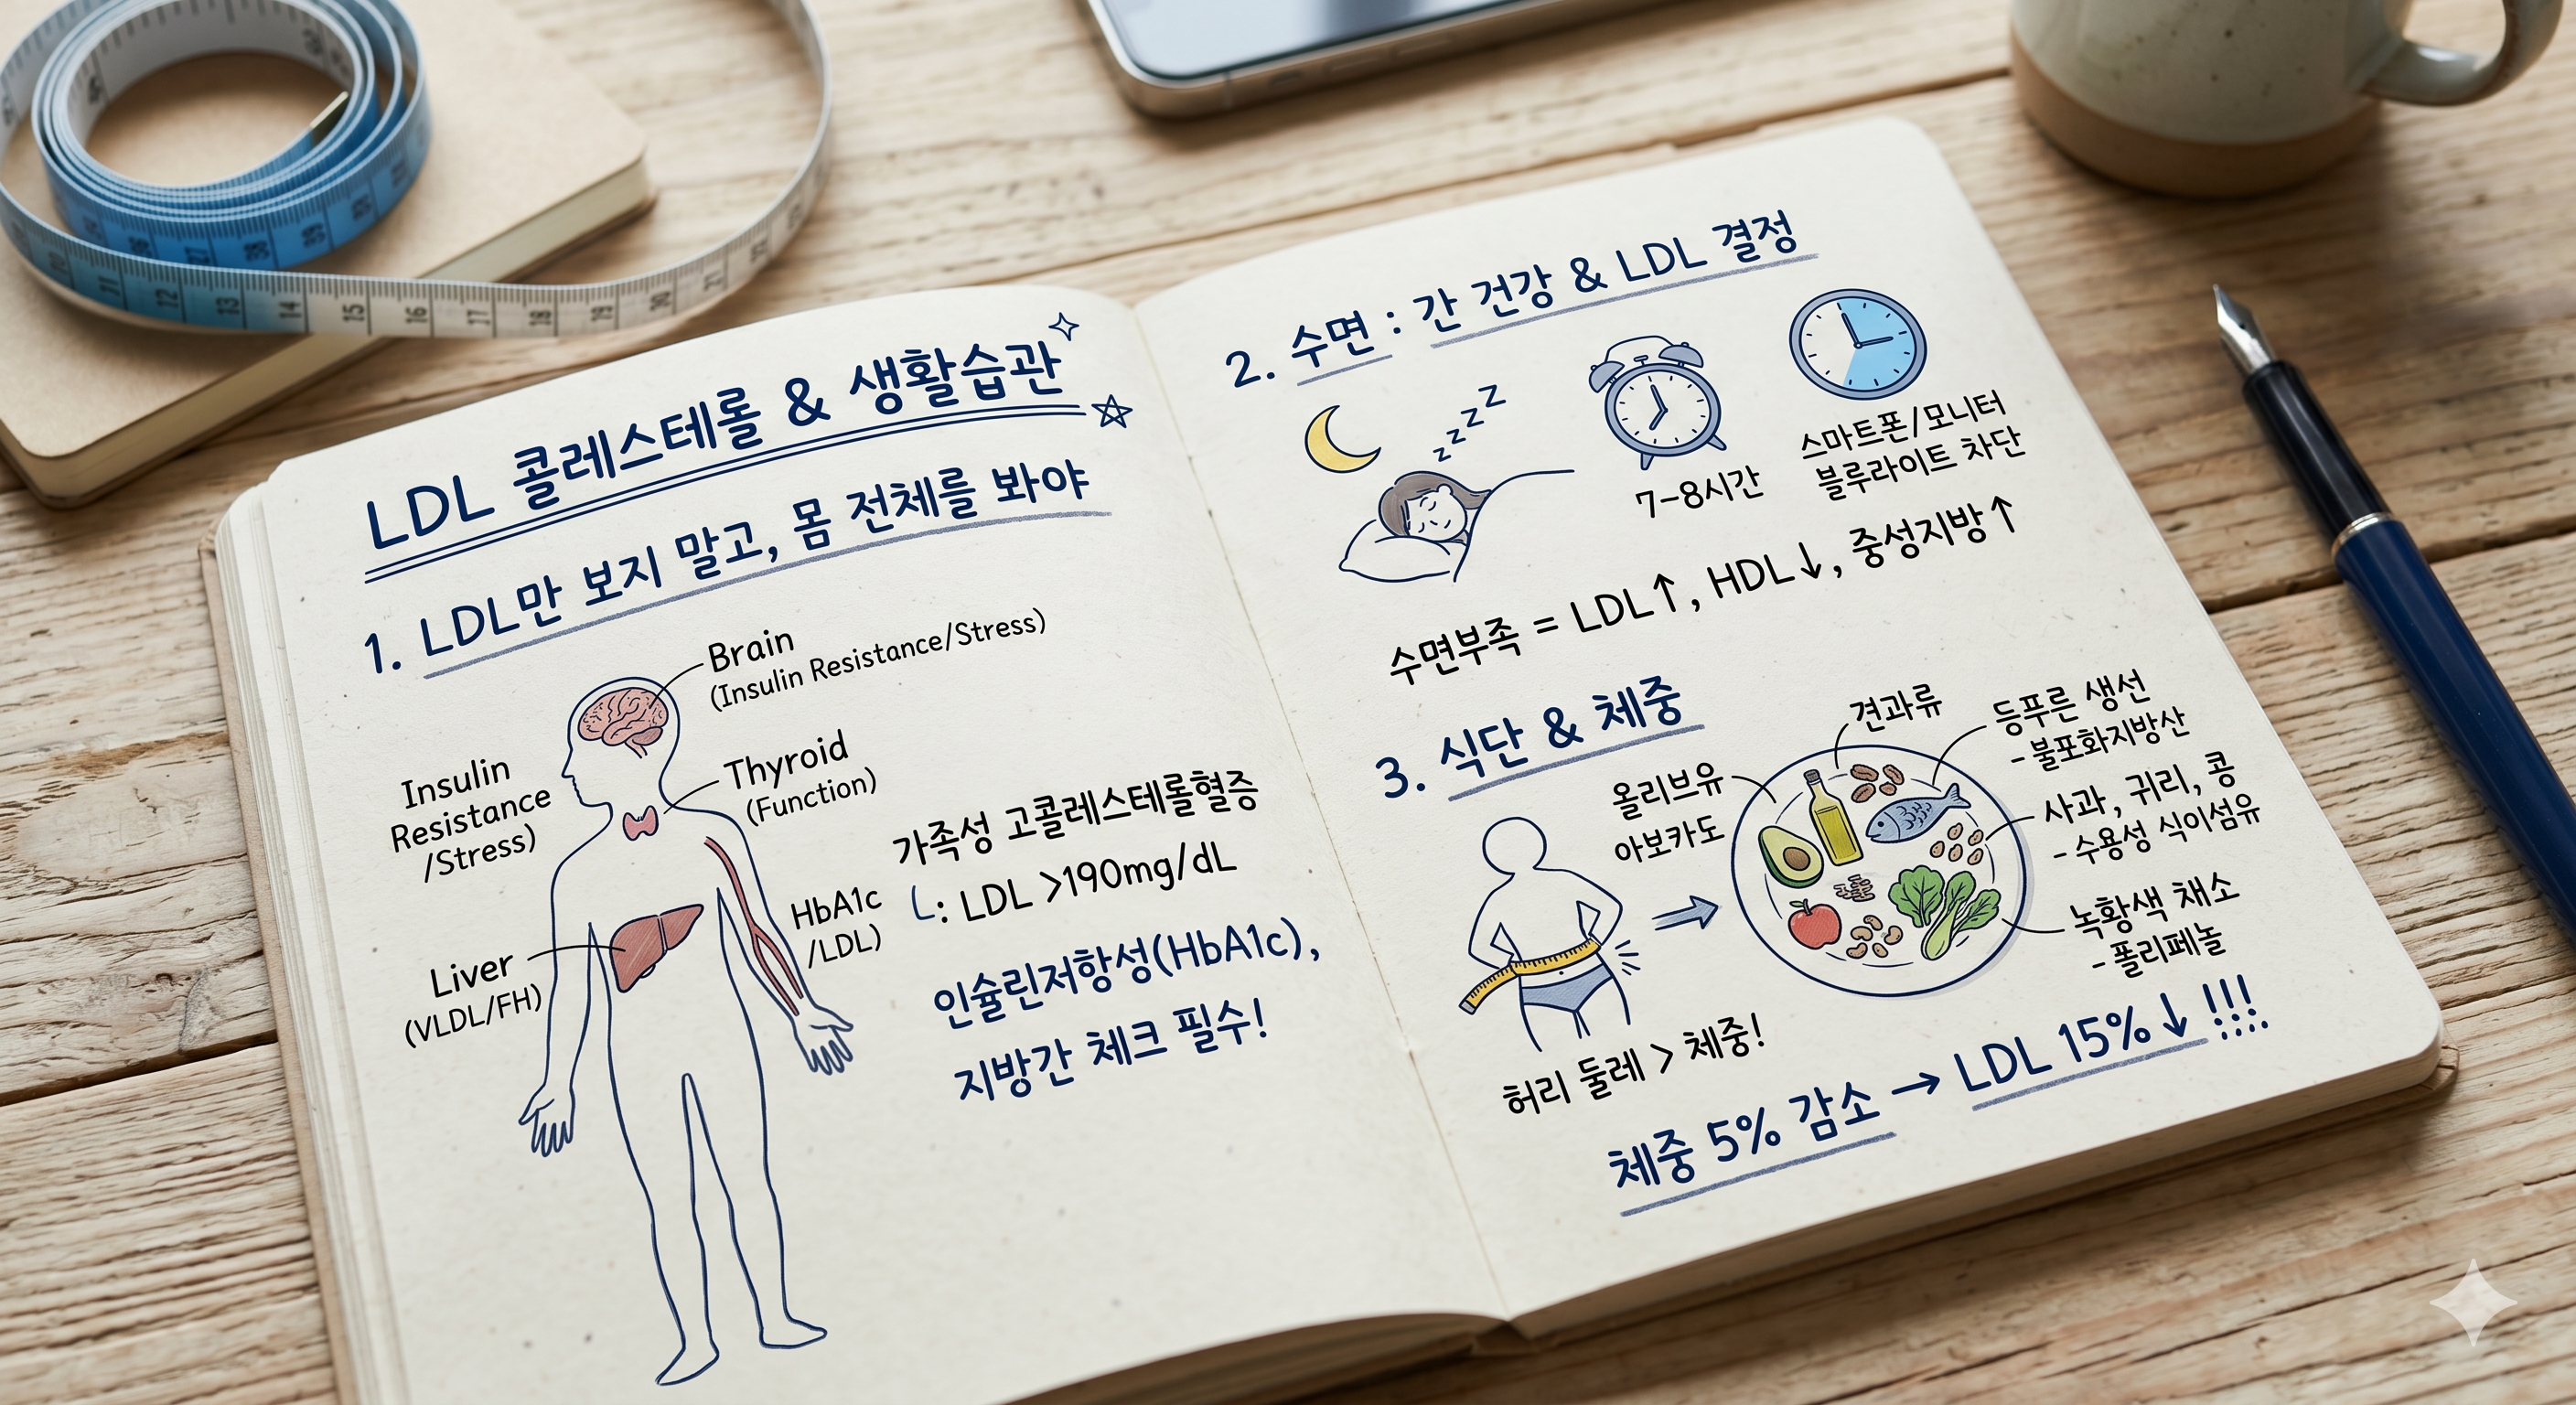 LDL 콜레스테롤 & 생활습관
1. LDL만 보지 말고, 몸 전체를 봐야
Brain
(Insulin Resistance/Stress)
Insulin
Resistance
/Stress)
Thyroid
(Function)
가족성 고콜레스테롤혈증
: LDL >190mg/dL
HbA1c
/LDL)
Liver
(VLDL/FH)
인슐린저항성(HbA1c),
지방간 체크 필수!
2. 수면 : 간 건강 & LDL 결정
z z z z z
7-8시간
스마트폰/모니터
블루라이트 차단
수면부족 = LDL↑, HDL↓, 중성지방↑
3. 식단 & 체중
견과류
등푸른 생선
- 불포화지방산
올리브유
아보카도
사과, 귀리, 콩
- 수용성 식이섬유
녹황색 채소
- 폴리페놀
허리 둘레 > 체중!
체중 5% 감소 → LDL 15%↓ !!!
11
12
13
14
15
16
17
18
19